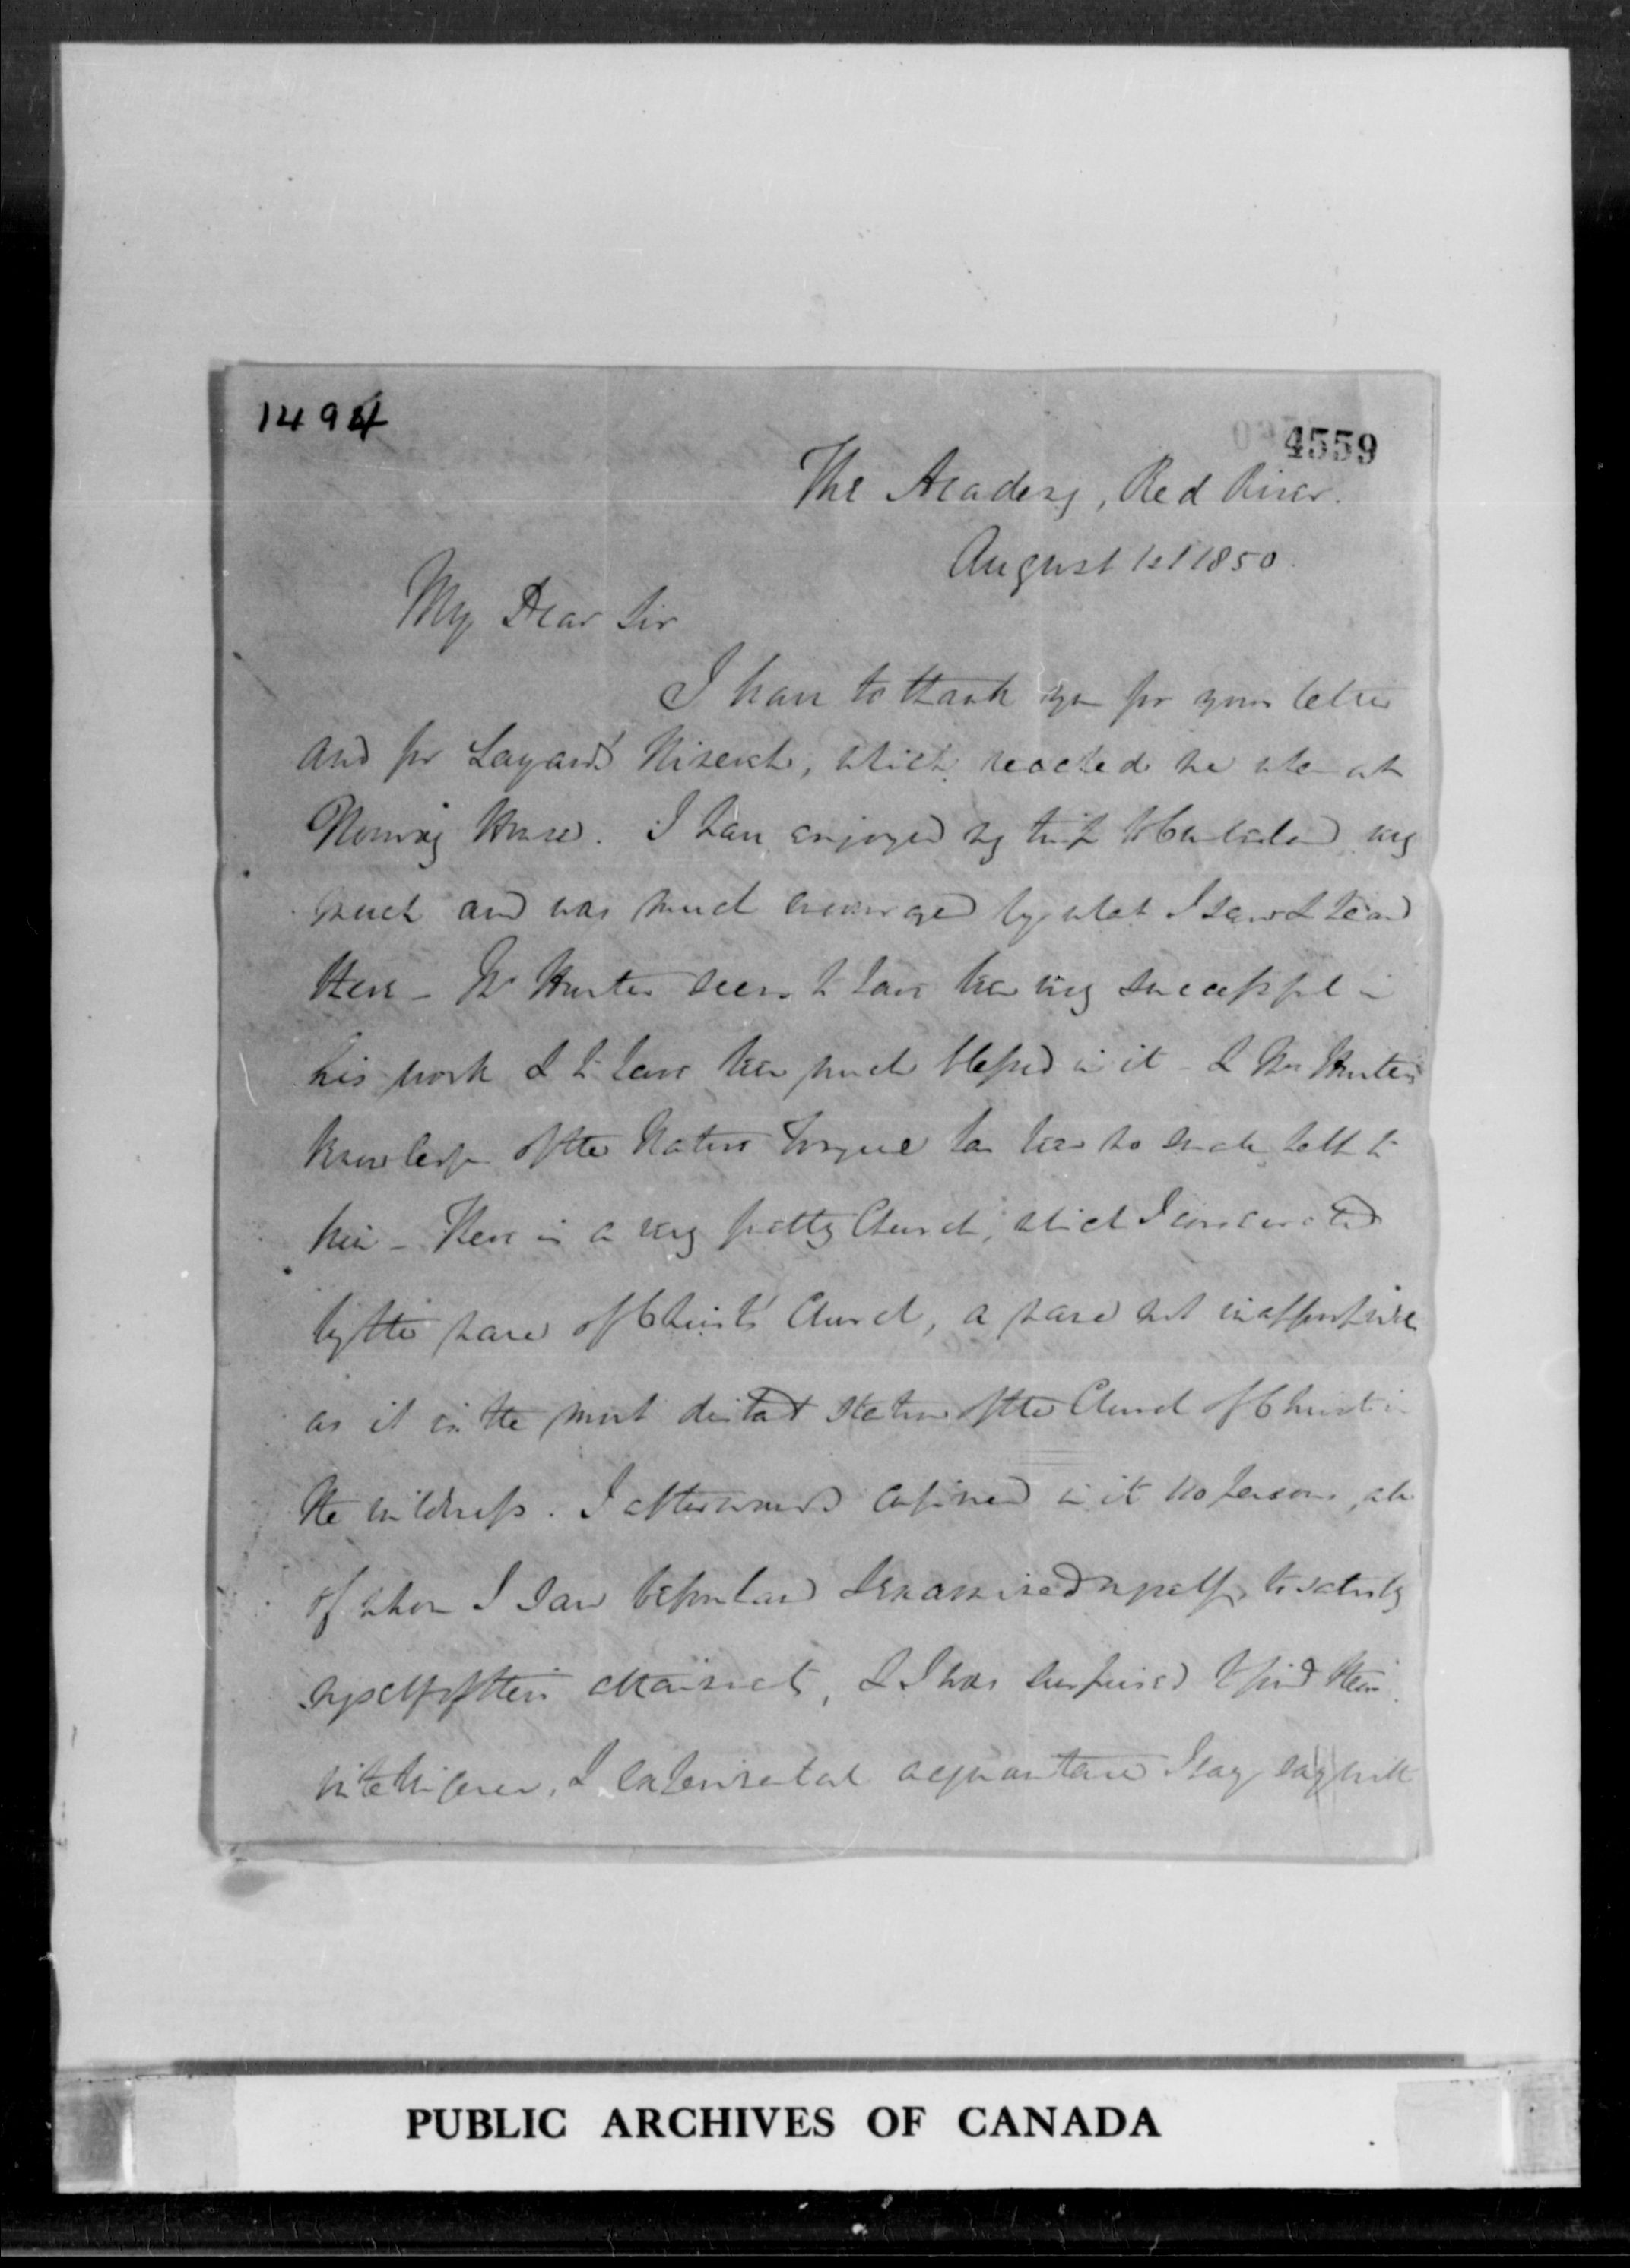 1494
4559
The Academy, Red River.
August 1st 1850.
My Dear Sir
I have to thank you for your letter
and for Layard's Nineveh, which reached me when at
Norway House. I have enjoyed my trip to Cumberland very
much and was much encouraged by what I saw & heard
there - Mr Hunter seems to have been very successful in
his work & to have been much blessed in it - & Mrs Hunter's
knowledge of the Native tongue has been so much help to
him - There is a very pretty Church, which I consecrated
by the name of Christ's Church, a name not inappropriate
as it is the most distant station of the Church of Christ in
the wilderness. I afterwards confirmed in it 110 persons, all
of whom I saw beforehand & examined myself, to satisfy
myself of their attainments, & I was surprised to find their
intelligence, & experimental acquaintance I may say with
PUBLIC ARCHIVES OF CANADA